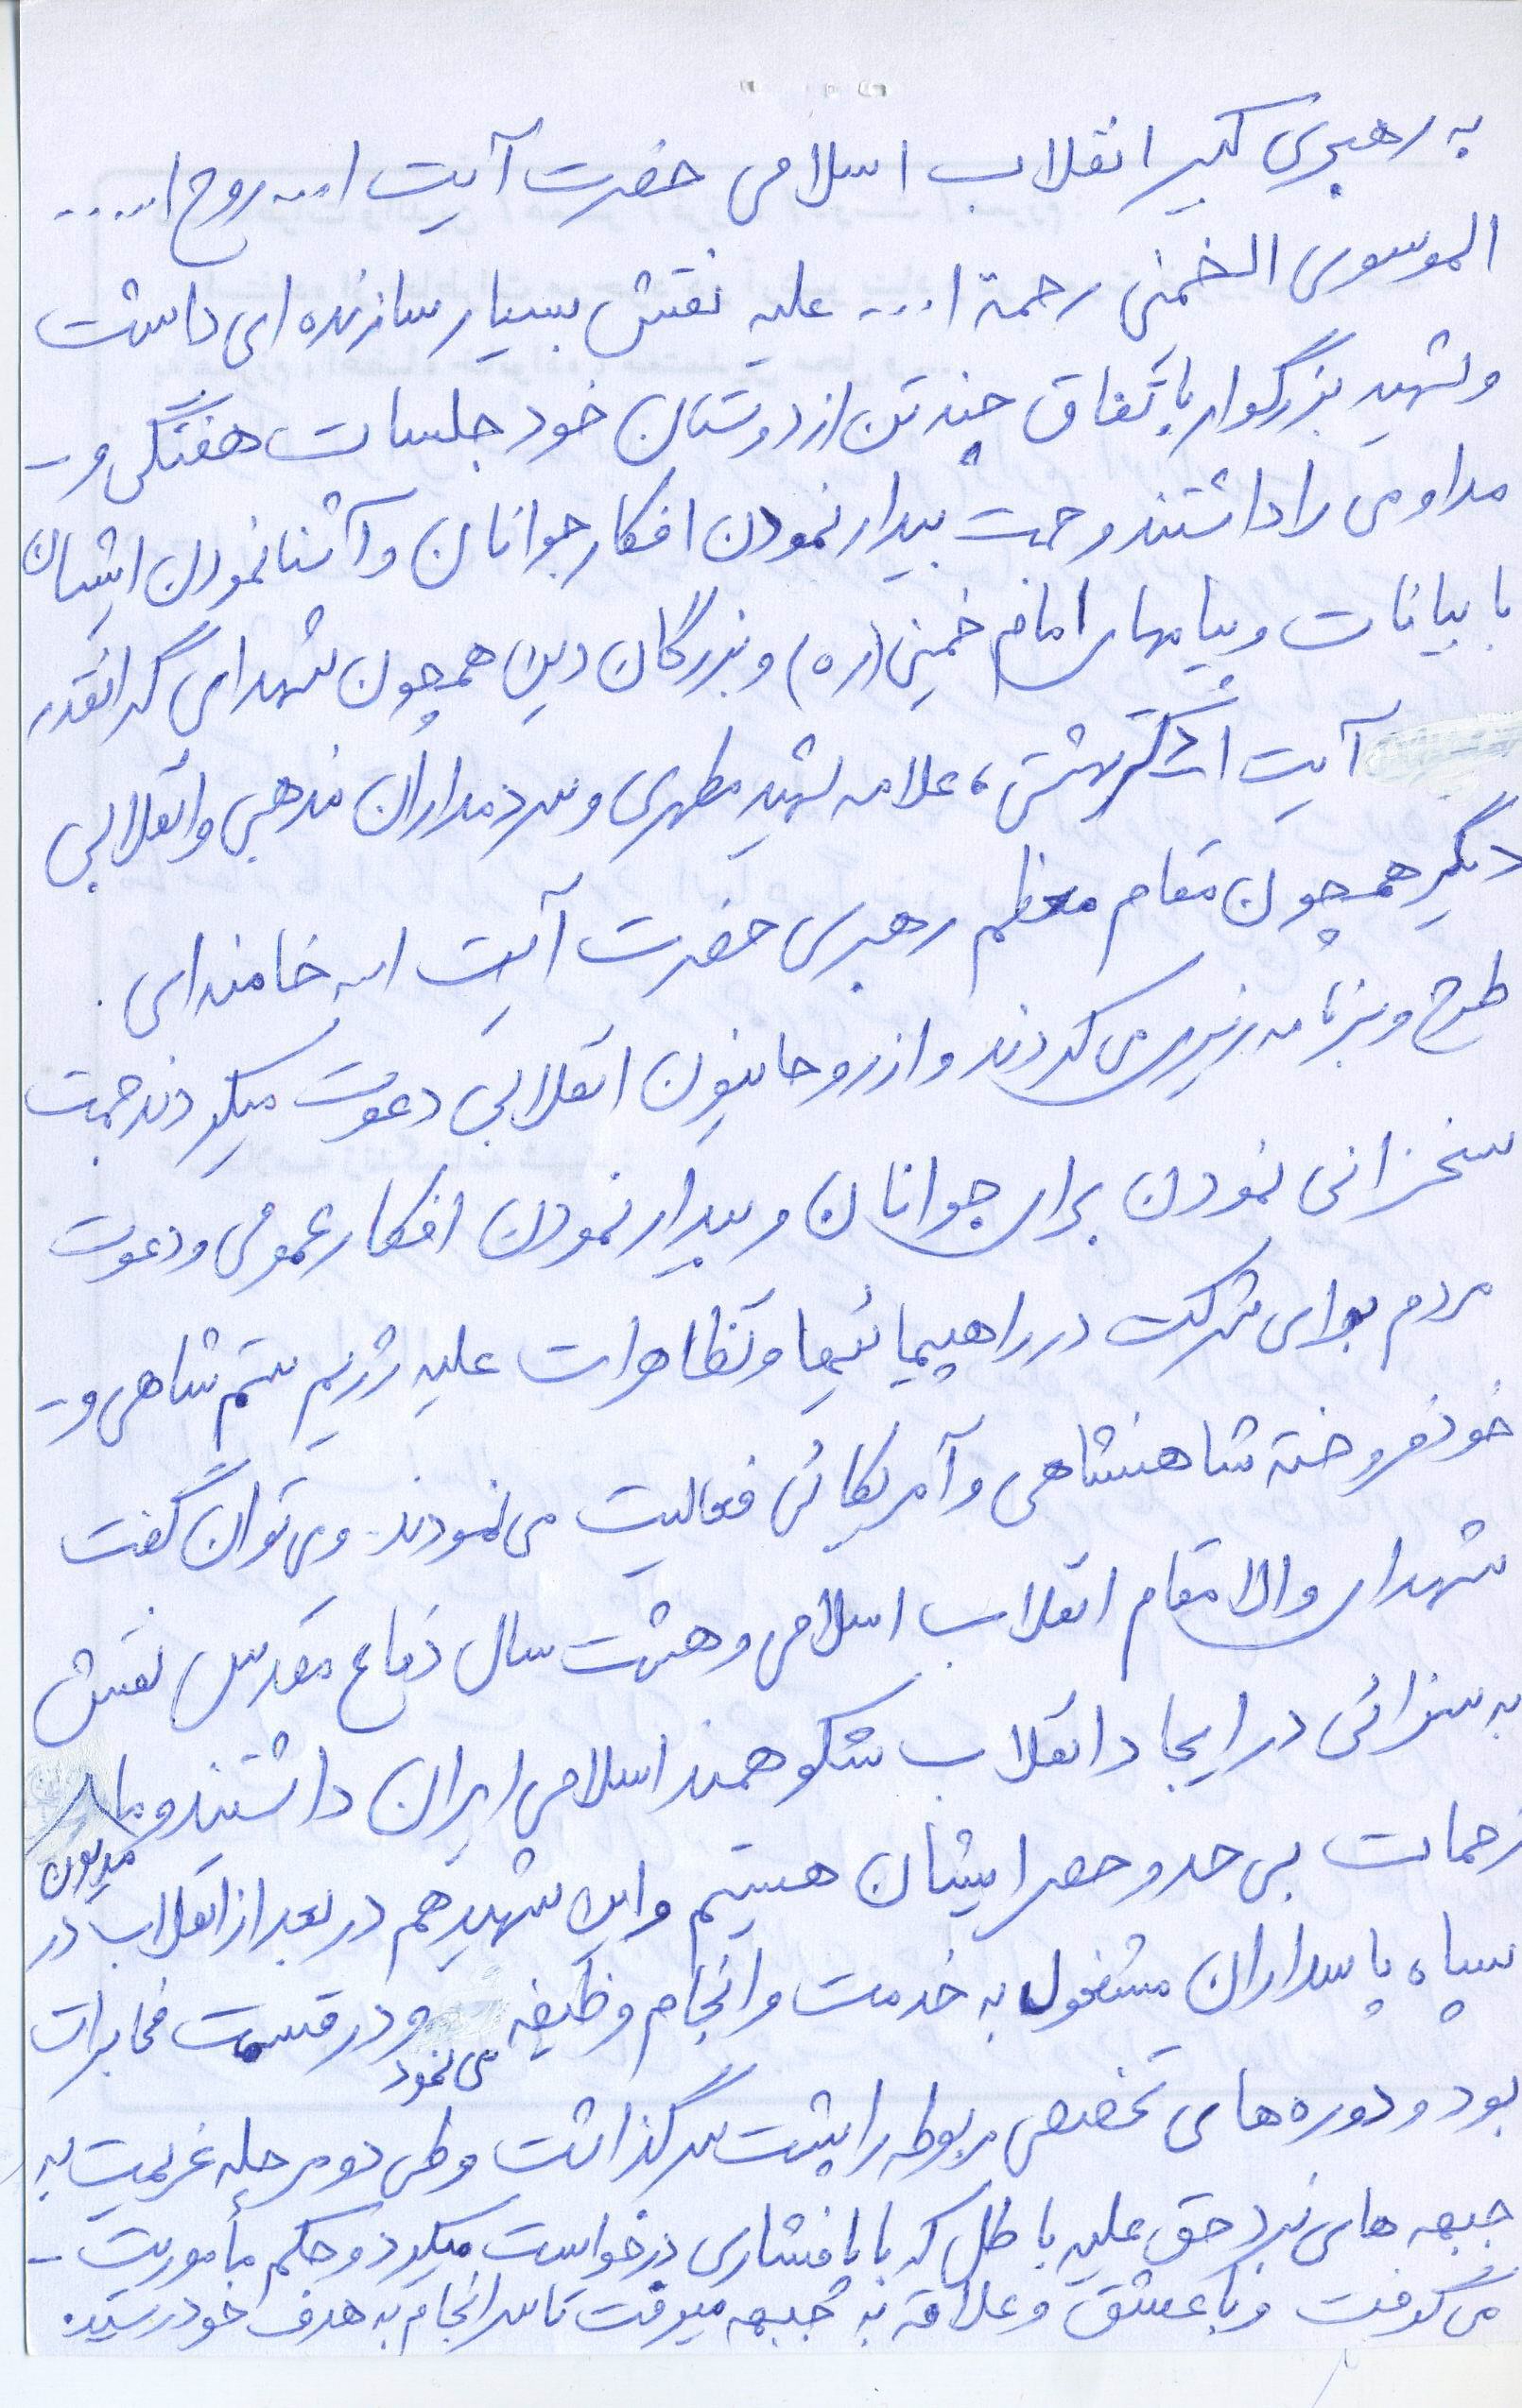 به رهبری کبیر انقلاب اسلامی حضرت آیت ا... روح ا.....
الموسوی الخمینی رحمة ا... علیه نقش بسیار سازنده ای داشت
و شهید بزرگوار باتفاق چند تن از دوستان خود جلسات هفتگی و -
مداومی را داشتند و جهت بیدار نمودن افکار جوانان و آشنا نمودن ایشان
با بیانات و پیامهای امام خمینی (ره) و بزرگان دین همچون شهدای گرانقدر
آیت ا... دکتر بهشتی، علامه شهید مطهری و سردمداران مذهبی و انقلابی
دیگر همچون مقام معظم رهبری حضرت آیت اله خامنه ای .
طرح و برنامه ریزی می کردند و از روحانیون انقلابی دعوت میکردند جهت
سخنرانی نمودن برای جوانان و بیدار نمودن افکار عمومی و دعوت
مردم برای شرکت در راهپیمائیها و تظاهرات علیه رژیم ستم شاهی و -
خودفروخته شاهنشاهی و آمریکائی فعالیت می نمودند. و می توان گفت
شهدای والا مقام انقلاب اسلامی و هشت سال دفاع مقدس نقش
به سزائی در ایجاد انقلاب شکوهمند اسلامی ایران داشتند و ما مدیون
زحمات بی حد و حصر ایشان هستیم و این شهید هم در بعد از انقلاب در
سپاه پاسداران مشغول به خدمت و انجام وظیفه می نمود و در قسمت مخابرات
بود و دوره های تخصصی مربوطه را پشت سر گذاشت و طی دو مرحله عزیمت به
جبهه های نبرد حق علیه باطل که با پافشاری درخواست میکرد و حکم مأموریت -
می گرفت و با عشق و علاقه به جبهه میرفت تا سرانجام به هدف خود رسید.